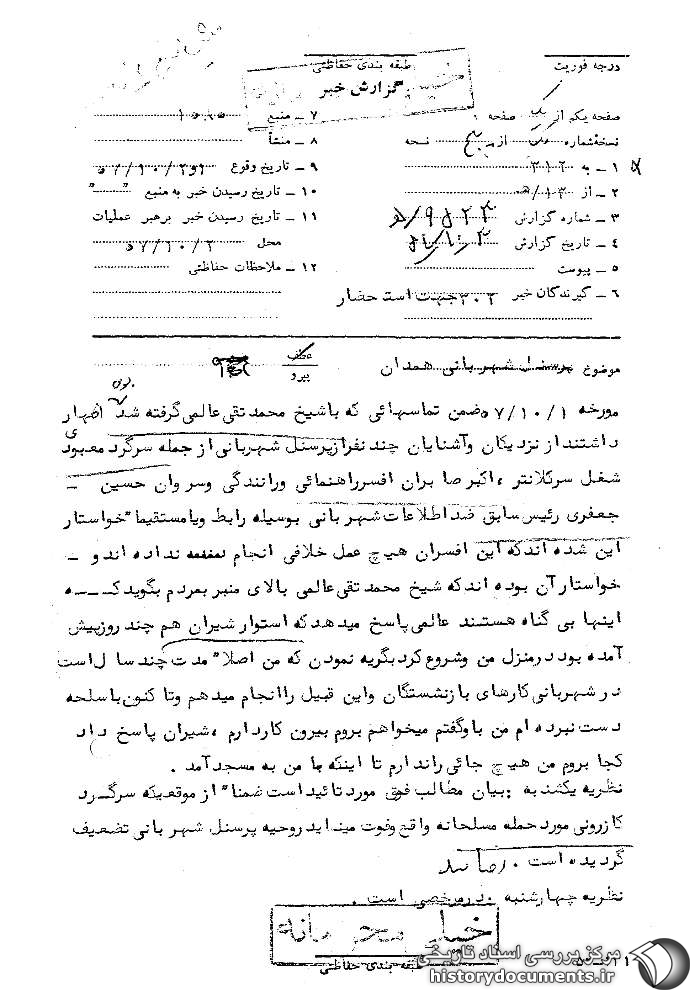 درجه فوریت
طبقه بندی حفاظتی
گزارش خبر
صفحه یکم از یک صفحه
نسخه شماره یک از پنج نسخه
۱ ـ به ۳۱۲
۲ ـ از ۱۳/ه‍
۳ ـ شماره گزارش
۴ ـ تاریخ گزارش
۵ ـ پیوست
۶ ـ گیرندگان خبر ۳۰۲ جهت استحضار
۷ ـ منبع
۸ ـ منشأ
۹ ـ تاریخ وقوع
۱۰ ـ تاریخ رسیدن خبر به منبع "
۱۱ ـ تاریخ رسیدن خبر برهبر عملیات
محل ۵۷/۱۰/۲
۱۲ ـ ملاحظات حفاظتی
موضوع پرسنل شهربانی همدان
عطف
پیرو
مورخه ۵۷/۱۰/۱ ضمن تماسهائی که باشیخ محمدتقی عالمی گرفته شده بود اظهار
داشتند از نزدیکان وآشنایان چند نفر از پرسنل شهربانی از جمله سرگرد معبودی
شغل سرکلانتر ، اکبر صابران افسر راهنمائی ورانندگی وسروان حسین ـ
جعفری رئیس سابق ضد اطلاعات شهربانی بوسیله رابط ویا مستقیما" خواستار
این شده اند که این افسران هیچ عمل خلافی انجام نداده اند و ـ
خواستار آن بوده اند که شیخ محمد تقی عالمی بالای منبر بمردم بگوید کـــه
اینها بی گناه هستند عالمی پاسخ میدهد که استوار شیران هم چند روز پیش
آمده بود در منزل من وشروع کرد بگریه نمودن که من اصلا" مدت چند سال است
در شهربانی کارهای بازنشستگان واین قبیل را انجام میدهم وتاکنون باسلحه
دست نبرده ام من باو گفتم میخواهم بروم بیرون کار دارم ، شیران پاسخ داد
کجا بروم من هیچ جائی را ندارم تا اینکه با من به مسجد آمد .
نظریه یکشنبه : بیان مطالب فوق مورد تائید است ضمنا" از موقعیکه سرگــرد
کازرونی مورد حمله مسلحانه واقع وفوت مینماید روحیه پرسنل شهربانی تضعیف
گردیده است .
نظریه چهارشنبه . در مرخصی است .
خیلی محرمانه
طبقه بندی حفاظتی
مرکز بررسی اسناد تاریخی
historydocuments.ir